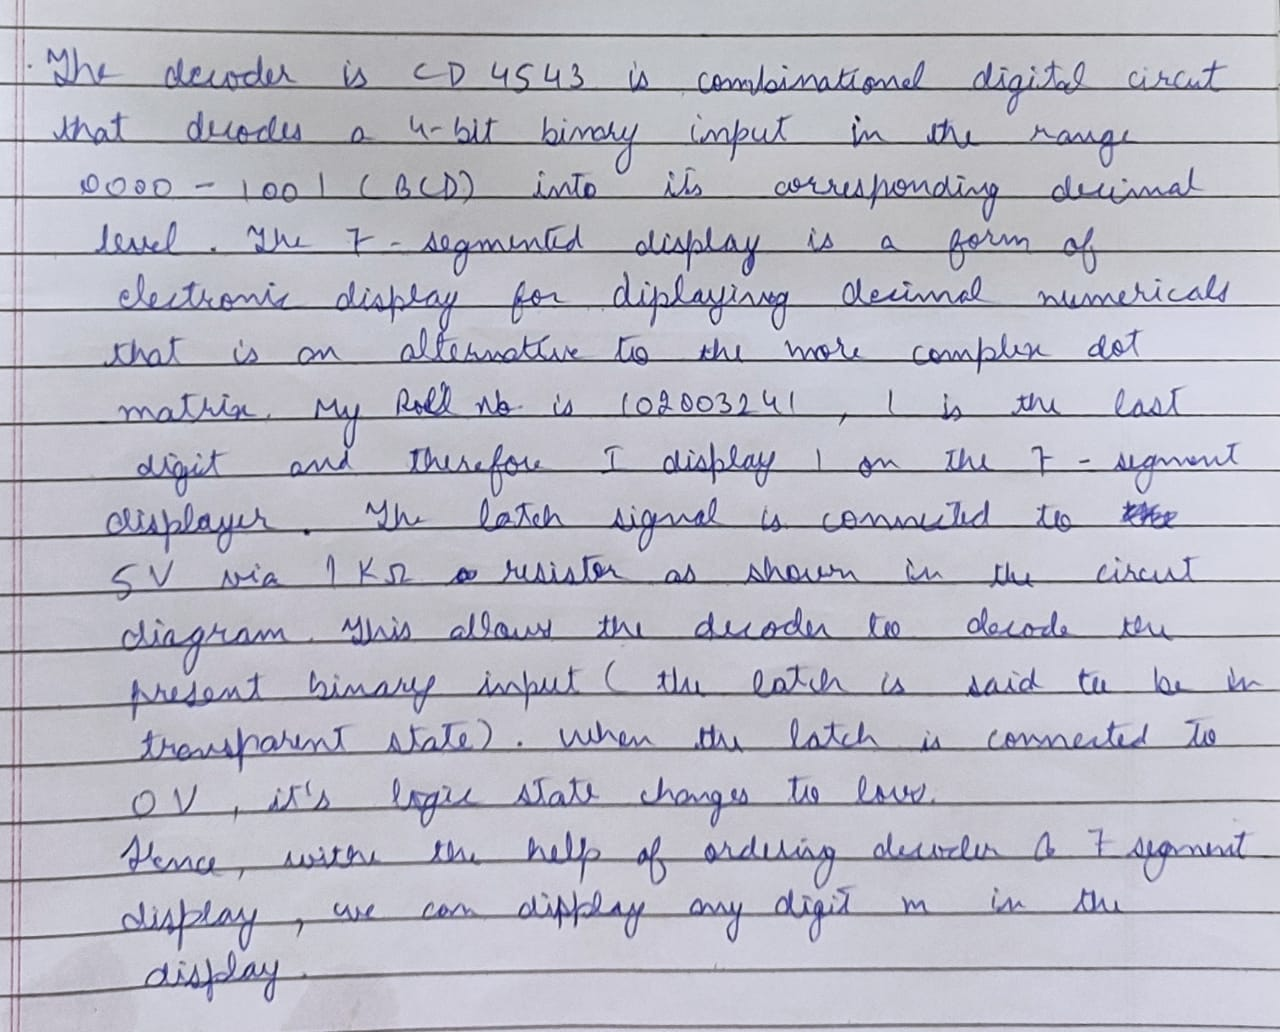 . The decoder is CD 4543 is combinational digital circut
that decodes a 4-bit binary input in the range
0000 - 1001 (BCD) into its corresponding decimal
level. The 7-segmented display is a form of
electronic display for diplayinng decimal numericals
that is an alternative to the more complex dot
matrix. My Roll No is 102003241, 1 is the last
digit and therefore I display 1 on the 7-segment
displayer. The latch signal is connected to
5V via 1KΩ resistor as shown in the circut
diagram. This allows the decoder to decode the
present binary input (the latch is said to be in
transparent state). When the latch is connected to
0V, it's logic state changes to low.
Hence, withe the help of ordering decoder & 7 segment
display, we can dipplay any digit m in the
display.